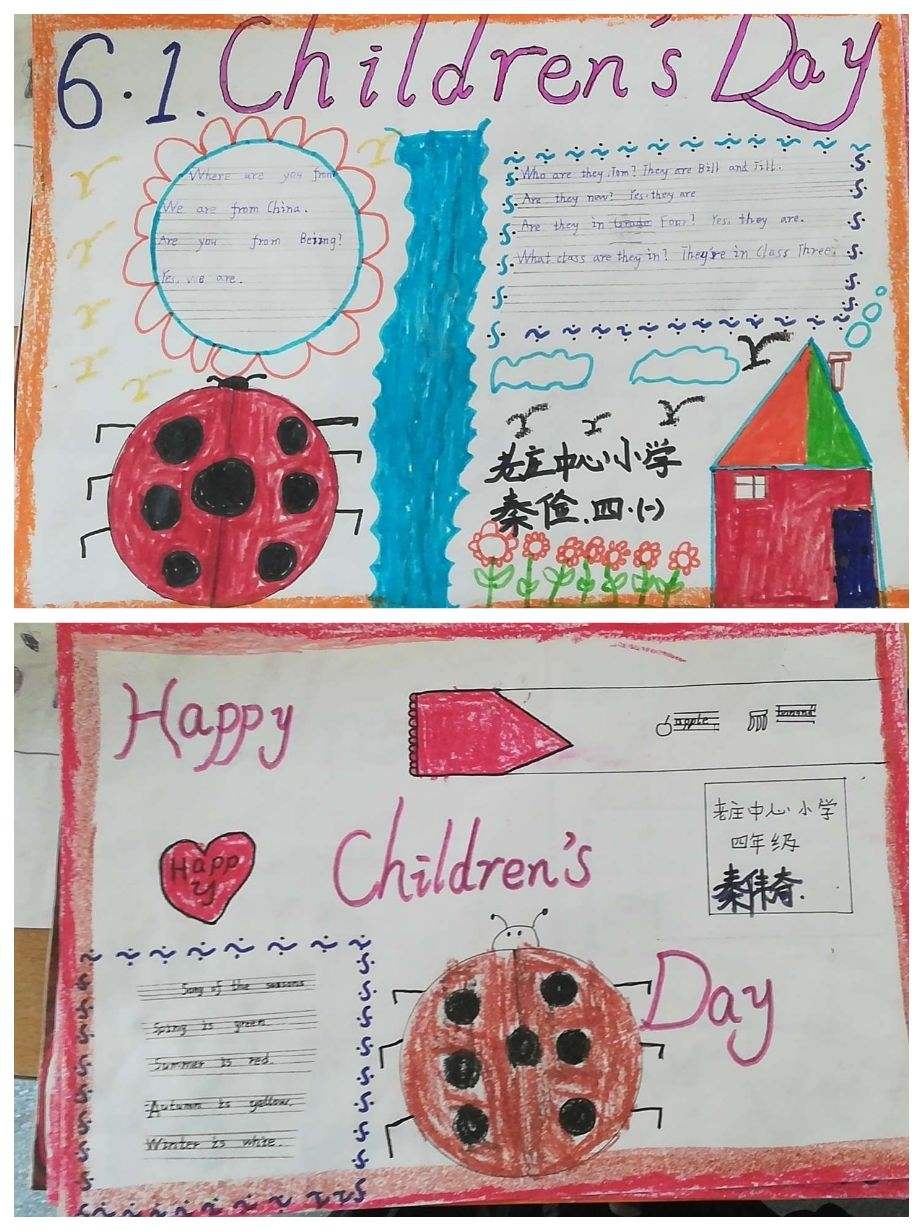 6.1. Children's Day
Where are you from
We are from China.
Are you from Beijing?
Yes, we are.
Who are they, Tom? They are Bill and Jill.
Are they new? Yes, they are
Are they in Grade Four? Yes, they are.
What class are they in? They're in Class Three.
老庄中心小学
秦俭.四.(一)
Happy
apple
banana
Children's
老庄中心小学
四年级
秦伟奇.
Happ
y
Day
Song of the seasons
Sping is green.
Summer is red.
Autumn is yallow.
Winter is white.